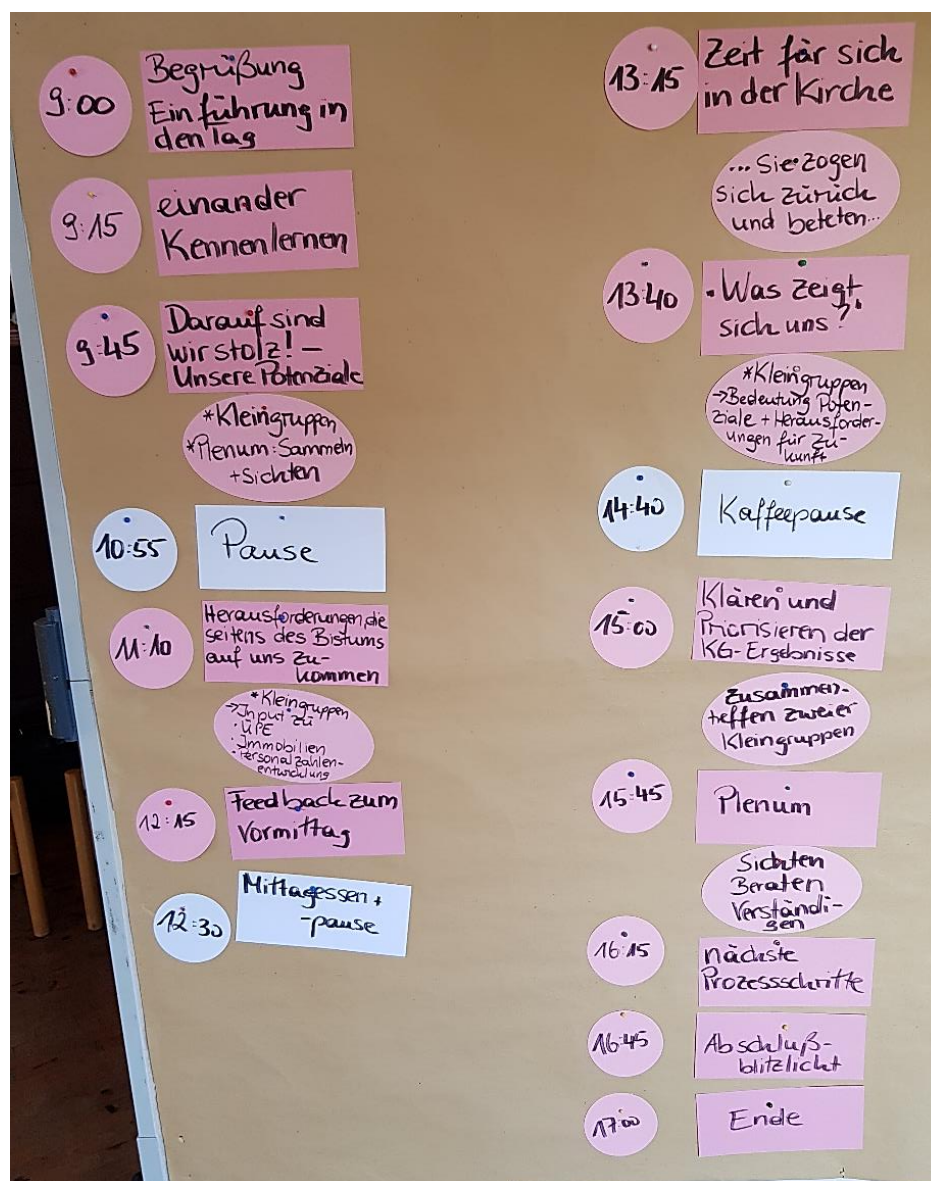 9:00
Begrüßung
Einführung in
den Tag
9:15
einander
Kennenlernen
9:45
Darauf sind
wir stolz! –
Unsere Potenziale
*Kleingruppen
*Plenum: Sammeln
+ Sichten
10:55
Pause
11:10
Herausforderungen, die
seitens des Bistums
auf uns zu-
kommen
*Kleingruppen
→ Input zu
· ÜPE
· Immobilien
· Personalzahlen-
entwicklung
12:15
Feedback zum
Vormittag
12:30
Mittagessen +
-pause
13:15
Zeit für sich
in der Kirche
... Sie zogen
sich zurück
und beteten...
13:40
· Was zeigt
sich uns?
*Kleingruppen
→ Bedeutung Poten-
ziale + Herausforder-
ungen für Zu-
kunft
14:40
Kaffeepause
15:00
Klären und
Priorisieren der
KG-Ergebnisse
Zusammen-
treffen zweier
Kleingruppen
15:45
Plenum
Sichten
Beraten
Verständi-
gen
16:15
nächste
Prozessschritte
16:45
Abschluß-
blitzlicht
17:00
Ende